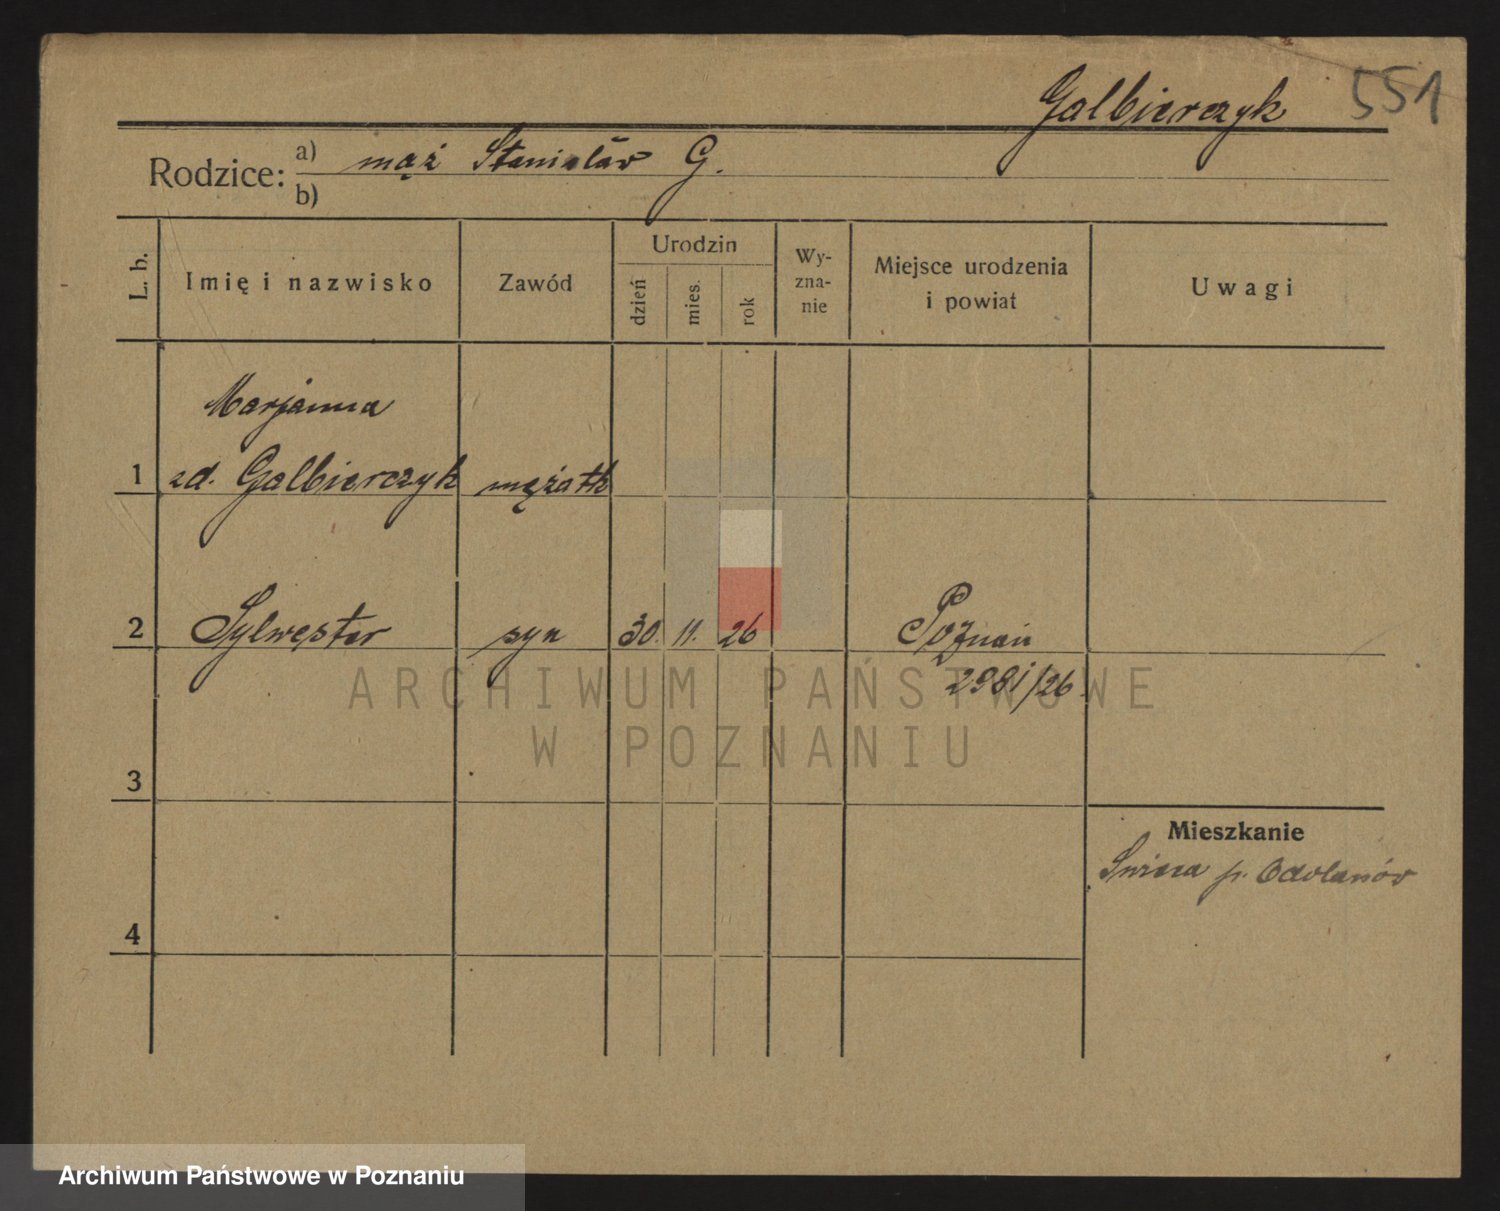 Galbierczyk 551
Rodzice: a) mąż Stanisław G.
b)
L. b. Imię i nazwisko Zawód Urodzin dzień mies. rok Wy-zna-nie Miejsce urodzenia i powiat Uwagi
Marjanna
1 zd. Galbierczyk mężatk
2 Sylwester syn 30. 11. 26 Poznań
2981/26
ARCHIWUM PAŃSTWOWE
W POZNANIU
3
Mieszkanie
p. Odolanów
4
Archiwum Państwowe w Poznaniu